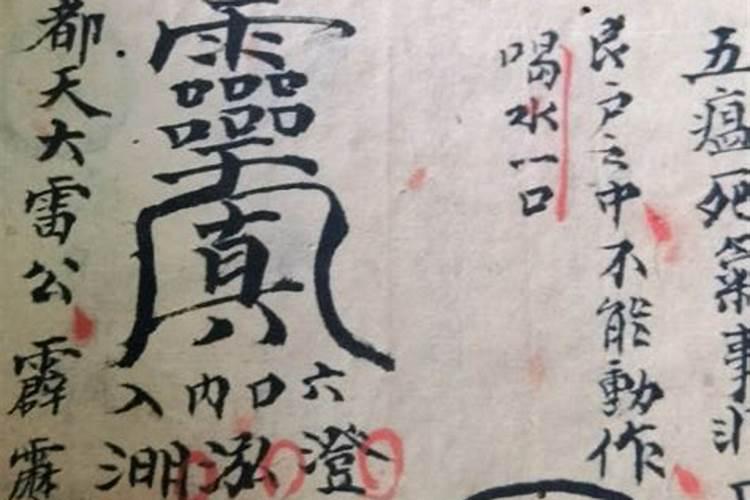 五瘟死氣事
艮户之中不能動作
喝水一口
真
六口内入
澄泓
都天大雷公霹靂